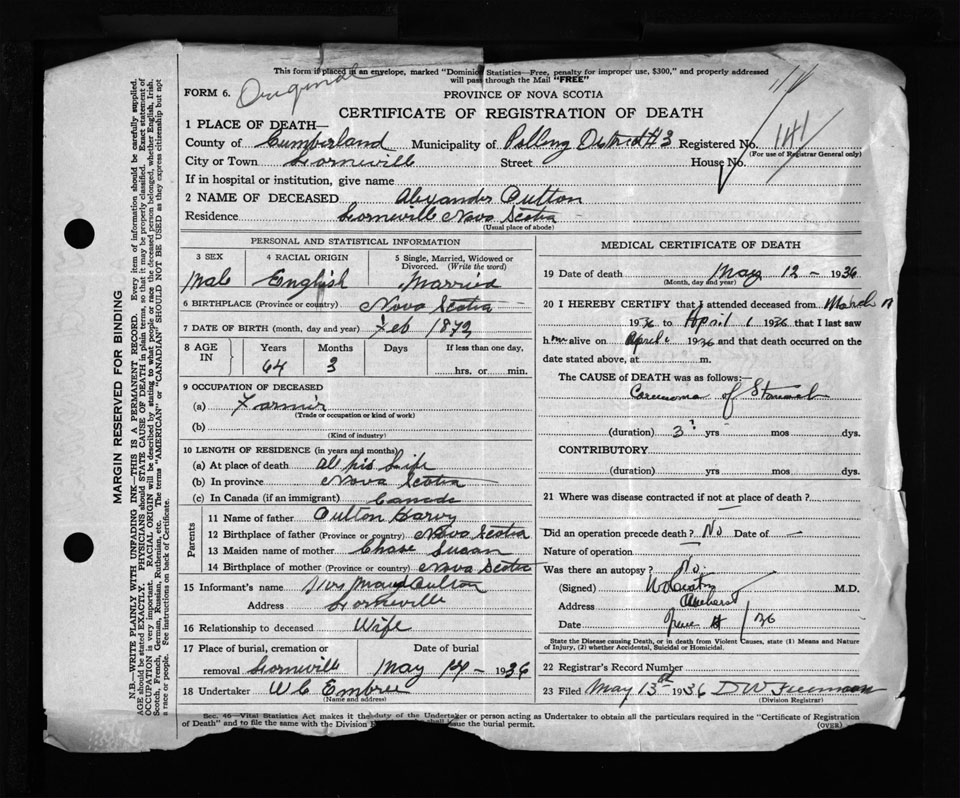 This form if placed in an envelope, marked "Dominion Statistics—Free, penalty for improper use, $300," and properly addressed
will pass through the Mail "FREE"
FORM 6.
Original
PROVINCE OF NOVA SCOTIA
CERTIFICATE OF REGISTRATION OF DEATH
1 PLACE OF DEATH—
County of Cumberland Municipality of Polling District #3 Registered No. 141
(For use of Registrar General only)
City or Town Lorneville Street House No.
If in hospital or institution, give name
2 NAME OF DECEASED Alexander Oulton
Residence Lorneville Nova Scotia
(Usual place of abode)
PERSONAL AND STATISTICAL INFORMATION
3 SEX 4 RACIAL ORIGIN 5 Single, Married, Widowed or
Divorced. (Write the word)
Male English Married
6 BIRTHPLACE (Province or country) Nova Scotia
7 DATE OF BIRTH (month, day and year) Feb 1872
8 AGE IN Years Months Days If less than one day,
64 3 hrs. or min.
9 OCCUPATION OF DECEASED
(a) Farmer
(Trade or occupation or kind of work)
(b)
(Kind of industry)
10 LENGTH OF RESIDENCE (in years and months)
(a) At place of death All his Life
(b) In province Nova Scotia
(c) In Canada (if an immigrant) Canada
Parents
11 Name of father Oulton Harvy
12 Birthplace of father (Province or country) Nova Scotia
13 Maiden name of mother Chase Susan
14 Birthplace of mother (Province or country) Nova Scotia
15 Informant's name Mrs Maud Oulton
Address Lorneville
16 Relationship to deceased Wife
17 Place of burial, cremation or Date of burial
removal Lorneville May 14 - 1936
18 Undertaker W C Embree
(Name and address)
MEDICAL CERTIFICATE OF DEATH
19 Date of death May 12 - 1936
(Month, day and year)
20 I HEREBY CERTIFY that I attended deceased from March
1936 to April 1 1936 that I last saw
h im alive on April 1 1936 and that death occurred on the
date stated above, at m.
The CAUSE of DEATH was as follows:—
Carcinoma of Stomach
(duration) 3 ? yrs mos dys.
CONTRIBUTORY
(duration) yrs mos dys.
21 Where was disease contracted if not at place of death ?
Did an operation precede death ? No Date of —
Nature of operation
Was there an autopsy ? No.
(Signed) M.D.
Address Amherst
Date June /36
State the Disease causing Death, or in death from Violent Causes, state (1) Means and Nature
of Injury, (2) whether Accidental, Suicidal or Homicidal.
22 Registrar's Record Number
23 Filed May 13th 1936 D W Freeman
(Division Registrar)
Sec. 46—Vital Statistics Act makes it the duty of the Undertaker or person acting as Undertaker to obtain all the particulars required in the "Certificate of Registration
of Death" and to file the same with the Division shall issue the burial permit.
(OVER)
MARGIN RESERVED FOR BINDING
N.B.—WRITE PLAINLY WITH UNFADING INK—THIS IS A PERMANENT RECORD. Every item of information should be carefully supplied.
AGE should be stated EXACTLY. PHYSICIANS should STATE CAUSE OF DEATH in plain terms, so that it may be properly classified. Exact statement of
OCCUPATION is very important. RACIAL ORIGIN will be described by stating to what people or race the deceased person belonged, whether English, Irish,
Scotch, French, German, Russian, Ruthenian, etc. The terms "AMERICAN" or "CANADIAN" SHOULD NOT BE USED as they express citizenship but not
a race or people. See instructions on back of Certificate.